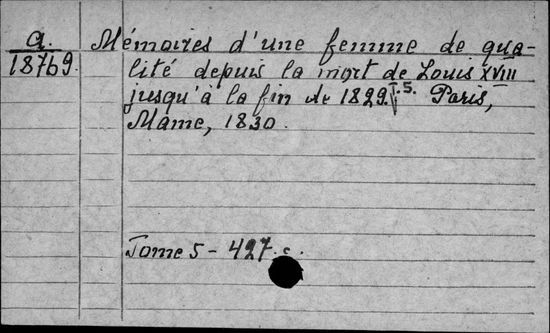 a.
18769.
Mémoires d'une femme de qua-
lité depuis la mort de Louis XVIII
jusqu'à la fin de 1829. T.5. Paris,
Mame, 1830.
Tome 5 - 427 с.